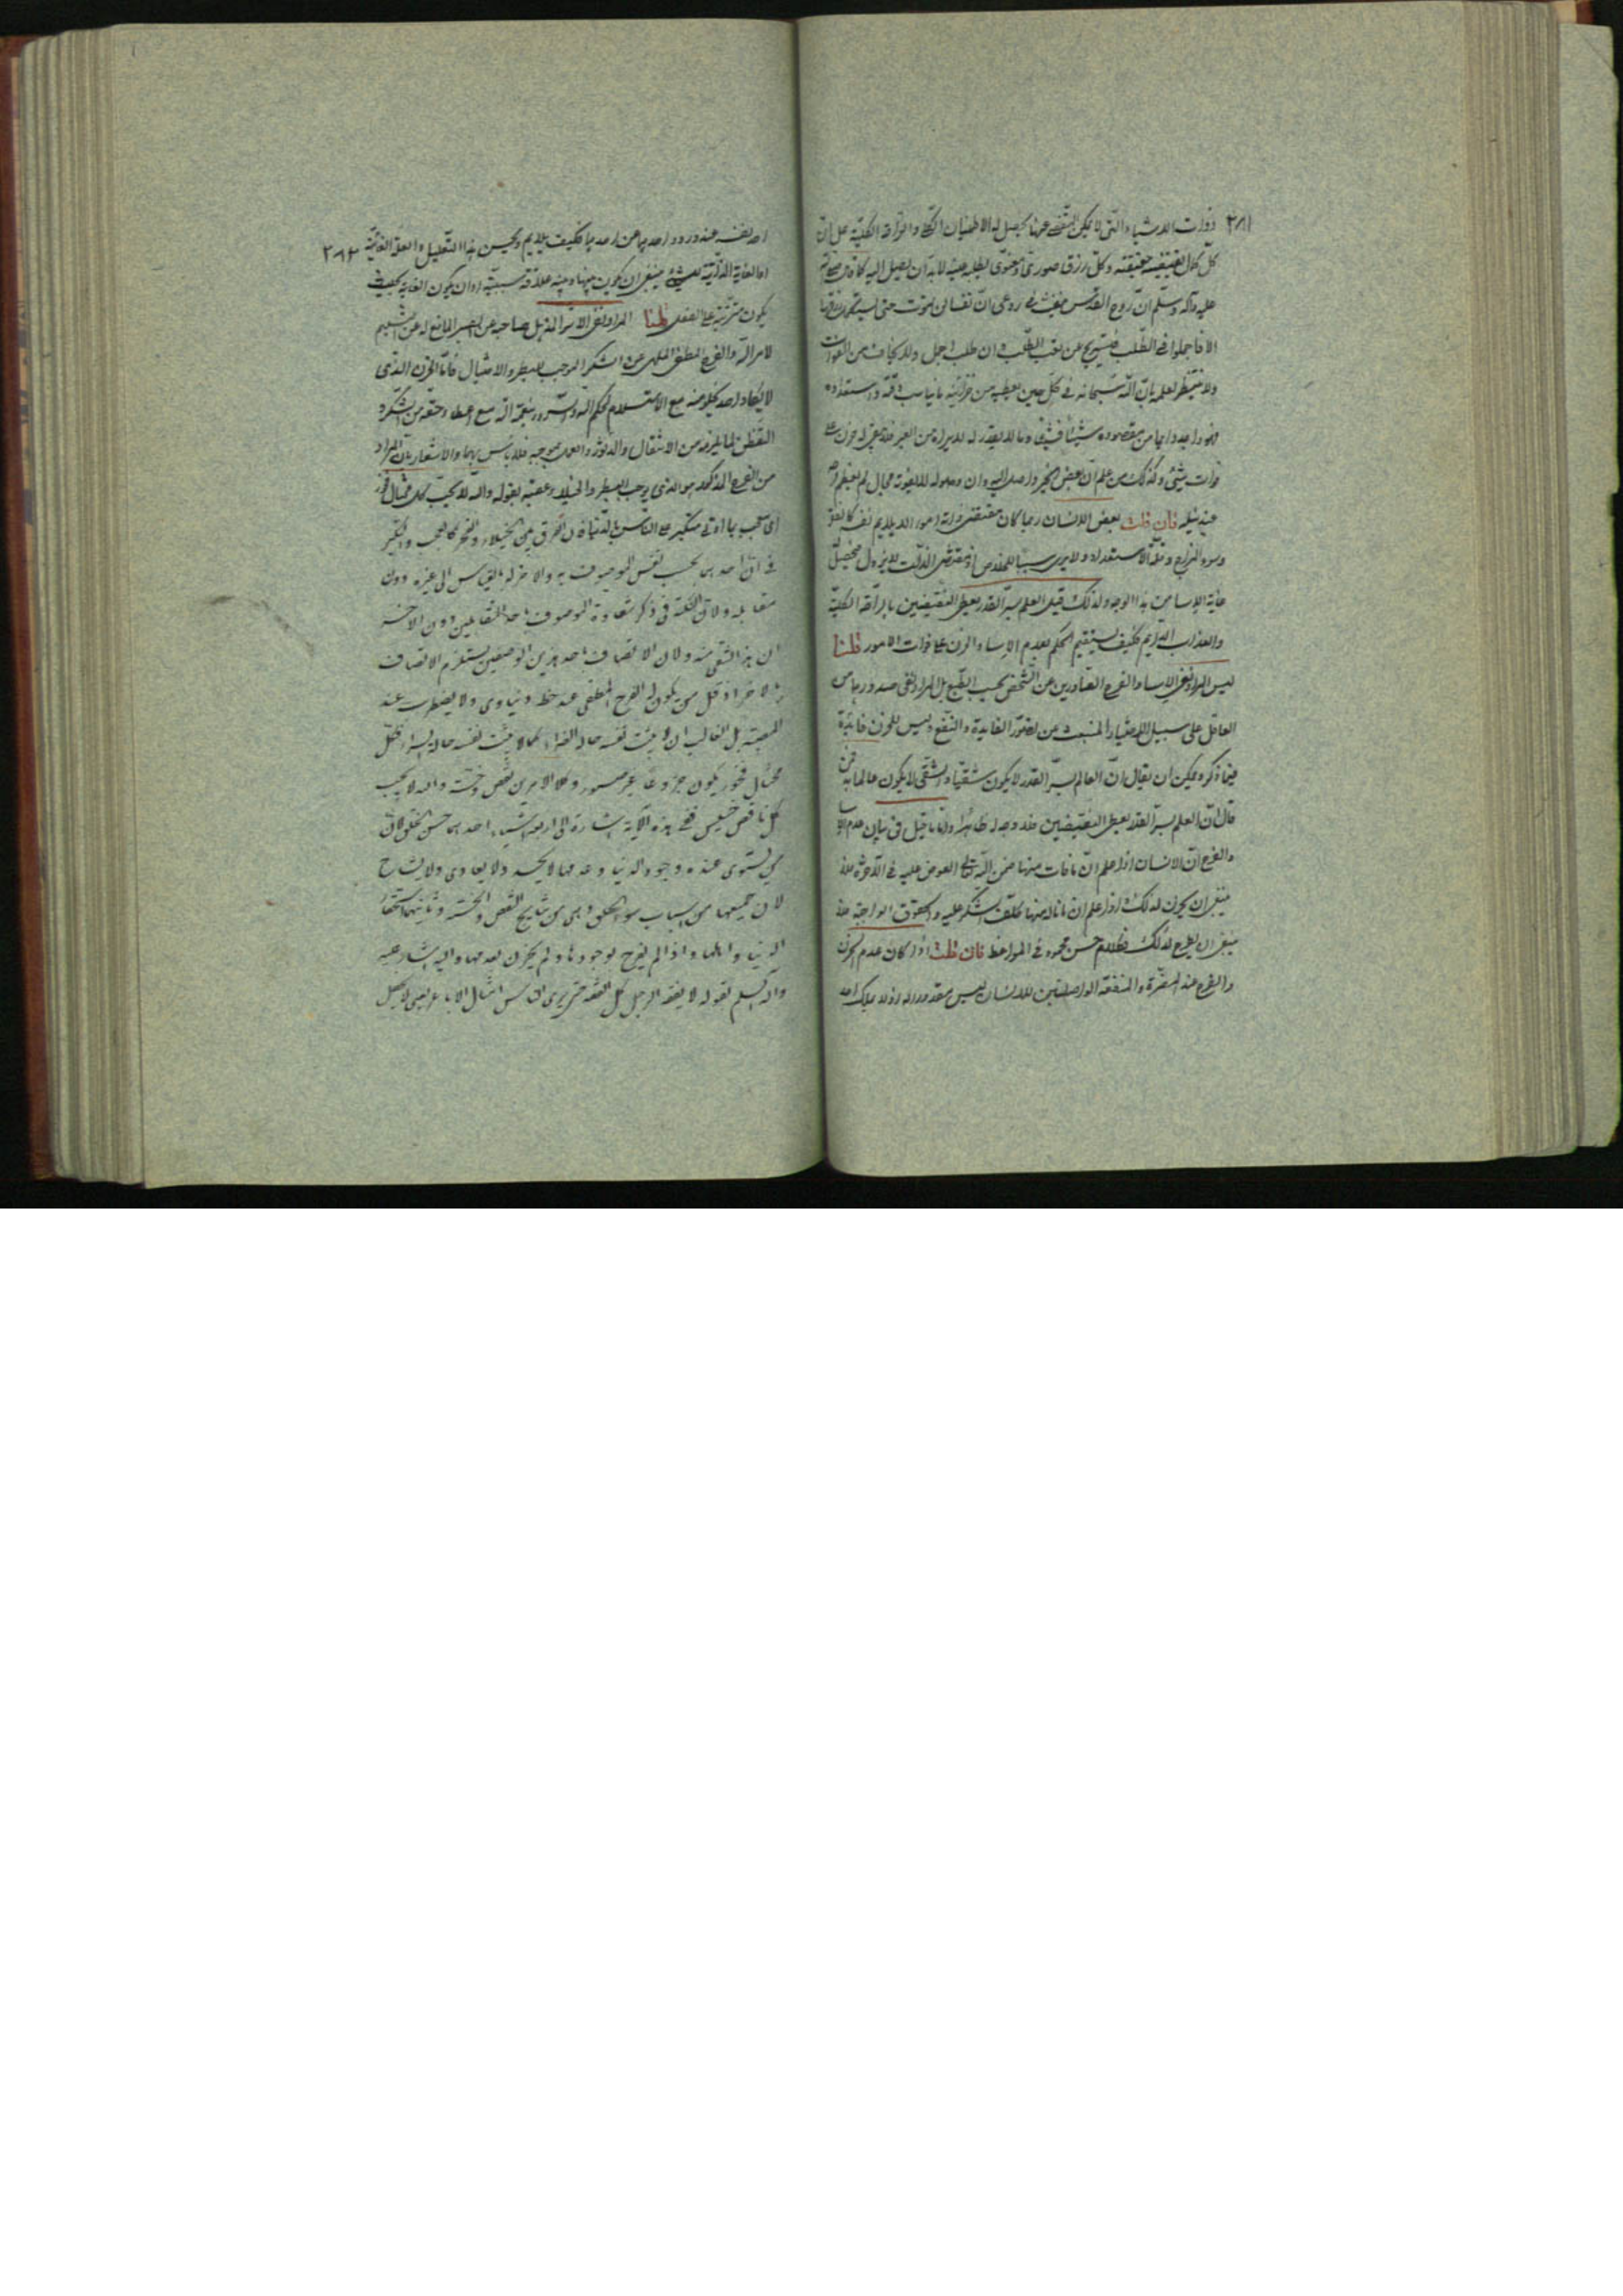 ٣٨١ ذوات الاشياء والتي لا يمكن التقصي عنها يحصل له الاطمينان الكلي والراحة الكلية على ان
كل كمال تقتضيه حقيقته وكل رزق صوري او معنوي يطلبه عينه لابد ان يصل اليه كما قال صلى الله
عليه وآله وسلم ان روح القدس نفث في روعي ان نفسا لن تموت حتى تستكمل رزقها
الا فاجملوا في الطلب فيستريح عن تعب الطلب وان طلب اجمل ولا يخاف من الفوات
ولا ينتظر لعلمه بان الله سبحانه في كل حين يعطيه من خزائنه ما يناسب وقته واستعداده
فهو واجد دايما من مقصوده شيئا فشيئا وما لا يقدر له لا يراه من الغير فلا يبقى له حزن على
فوات شيئ وكذلك من علم ان بعض الخير واصل اليه وان وصوله لا يفوته بحال لم يعظم فرحه
عند نيله فان قلت بعض الانسان ربما كان مقتضى ذاته امور لا يلايم نفسه كالفقر
وسوء المزاج وقلة الاستعداد ولا يرى سببا للخلاص اذ مقتضى الذات لا يزول فيحصل
غاية الاسا من هذا الوجه ولذلك قيل العلم بسر القدر يعطي النقيضين بالراحة الكلية
والعذاب الاليم فكيف يستقيم الحكم بعدم الاسا والحزن على فوات الامور قلنا
ليس المراد نفي الاسا والفرح الصادرين عن الشخص بحسب الطبع بل المراد نفي صدورهما من
العاقل على سبيل الاختيار المنبعث عن تصور الفايدة والنفع وليس للحزن فايدة
فيما ذكره ويمكن ان يقال ان العالم بسر القدر لا يكون شقيا والشقي لا يكون عالما به فمن
قال ان العلم بسر القدر يعطي النقيضين فلا وجه له ظاهرا واما ما قيل في بيان عدم الاسا
والفرح ان الانسان اذا علم ان ما فات منها ضمن الله تعالى العوض عليه في الآخرة فلا
ينبغي ان يحزن لذلك واذا علم ان ما ناله منها كلف الشكر عليه والحقوق الواجبة فلا
ينبغي ان يفرح لذلك فكلام حسن محمود في المواعظ فان قلت اذا كان عدم الحزن
والفرح عند المضرة والمنفعة الواصلتين للانسان ليس مقدورا له اذ لا يملك احد
٣٨٢ احد نفسه عند ورود احدهما عن احدهما فكيف يلايم ويحسن هذا التعليل والعلة الغائية
اما الغاية الذاتية للشيئ فينبغي ان يكون بينها وبينه علاقة سببية او ان يكون الغاية بحيث
يكون مترتبة على الفعل قلنا المراد نفي الاثر المذهل صاحبه عن الصبر المانع له عن التسليم
لامر الله والفرح المطغي الملهي عن الشكر الموجب للبطر والاختيال فاما الحزن الذي
لا يكاد احد يخلو منه مع الاستسلام لحكم الله والسرور بنعمة الله مع اعطاء حقه من الشكر و
التفطن لما يلزمه من الانتقال والدثور والعمل بموجبه فلا بأس بهما والاشعار بان المراد
من الفرح المذكور هو الذي يوجب البطر والخيلاء عقبه بقوله والله لا يحب كل مختال فخور
اي معجب بما اوتي متكبر على الناس بالدنيا الفرق بين الخيلاء والفخر كالعجب والتكبر
في ان احدهما بحسب نفس الموصوف به والاخر له بالقياس الى غيره دون
مقابله ولان النكتة في ذكر شقاوة الموصوف باحد المتقابلين دون الآخر
ان هذا اشقى منه ولان الاتصاف باحد هذين الوصفين يستلزم الاتصاف
بالاخر اذ قل من يكون له الفرح المطغي عند حظ دنياوي ولا يضطرب عند
المصيبة بل الغالب ان لا يثبت نفسه حالة الضراء كما لا يثبت نفسه حالة السراء فكل
مختال فخور يكون جزوعا غير صبور وكلا الامرين نقص وخسة والله لا يحب
كل ناقص خسيس ففي هذه الآية اشارة الى اربعة اشياء احدها حسن الخلق لان
من استوى عنده وجود الدنيا وعدمها لا يحسد ولا يعادي ولا يشاح
لان جميعها من اسباب سوء الخلق وهي من نتايج النقص والخسة وثانيها استحقار
الدنيا واهلها اذا لم يفرح بوجودها ولم يحزن بعدمها واليه اشار عليه
وآله السلم بقوله لا يفقه الرجل كل الفقه حتى يرى الناس امثال الاباعر